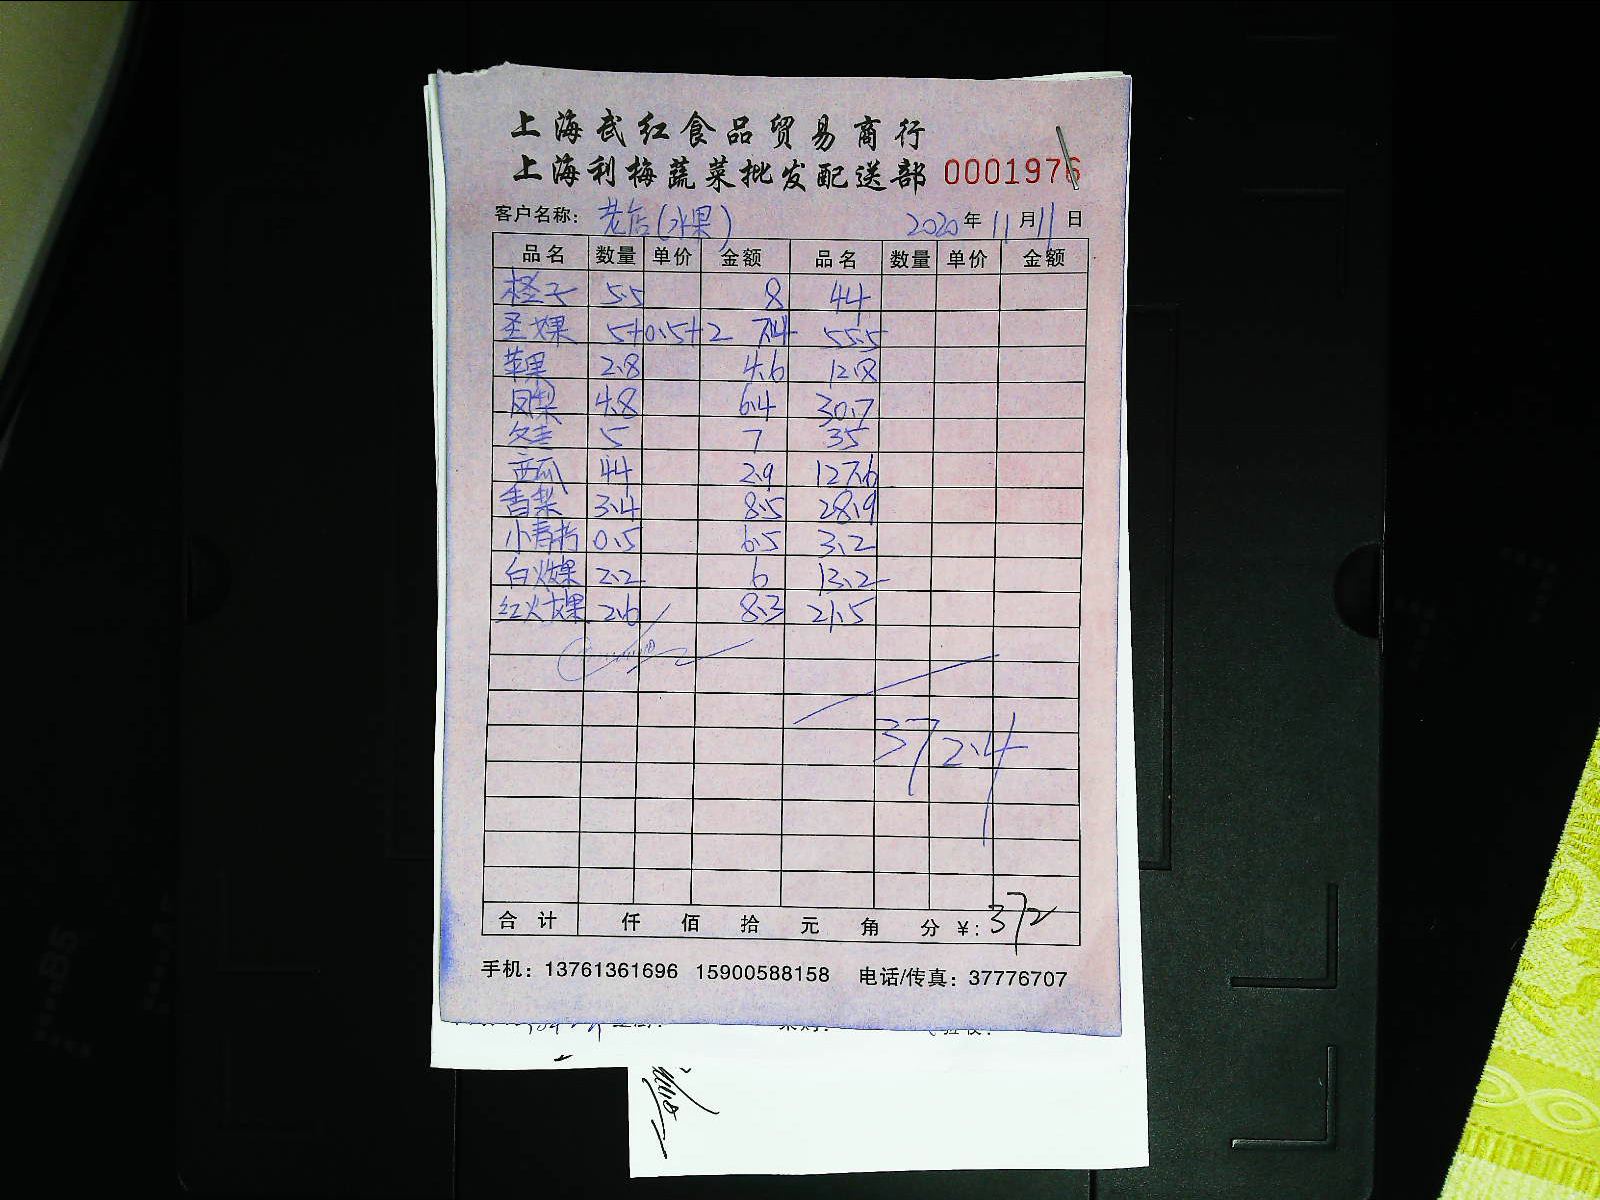 上海武红食品贸易商行
上海利梅蔬菜批发配送部 0001976
客户名称: 老店(水果) 2020年11月11日
品名 数量 单价 金额 品名 数量 单价 金额
橙子 5.5 8 44
圣女果 5+0.5+2 7.4 55.5
苹果 2.8 4.6 12.8
凤梨 4.8 6.4 30.7
冬枣 5 7 35
西瓜 44 2.9 127.6
香梨 3.4 8.5 28.9
小青柠 0.5 6.5 3.2
白火龙果 2.2 6 13.2
红火龙果 2.6 8.3 21.5
372.4
合计 仟 佰 拾 元 角 分 ¥: 372
手机: 13761361696 15900588158 电话/传真: 37776707